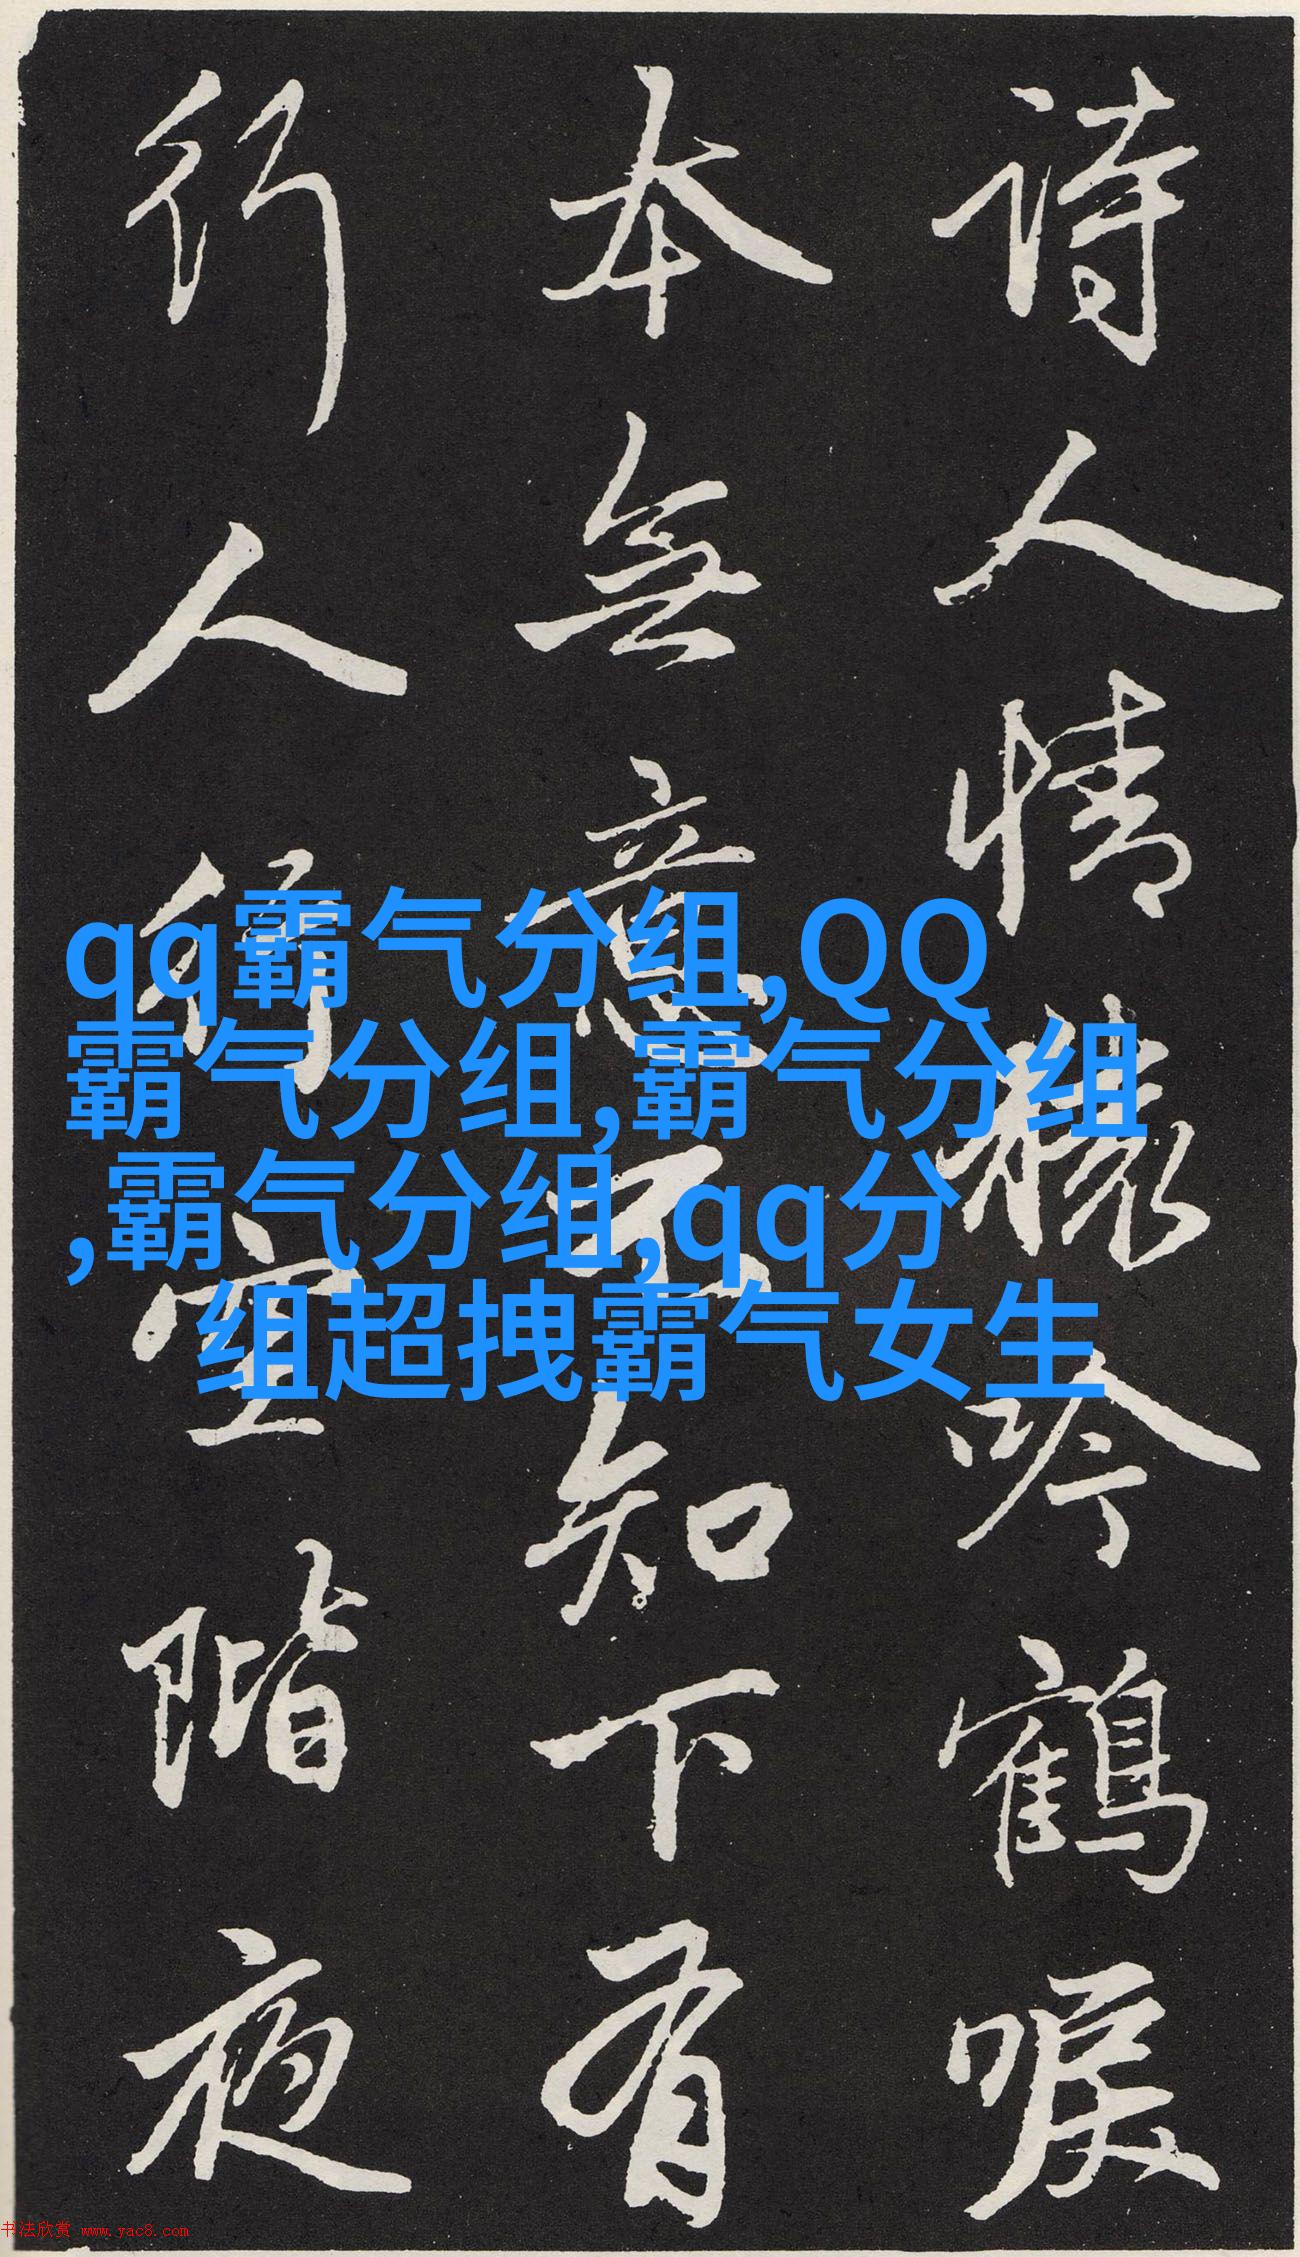 詩人情吟鶴唳
本無意不知下有
行人空階夜
qq霸气分组,QQ
霸气分组,霸气分组
,霸气分组,qq分
组超拽霸气女生
书法欣赏 www.yac8.com